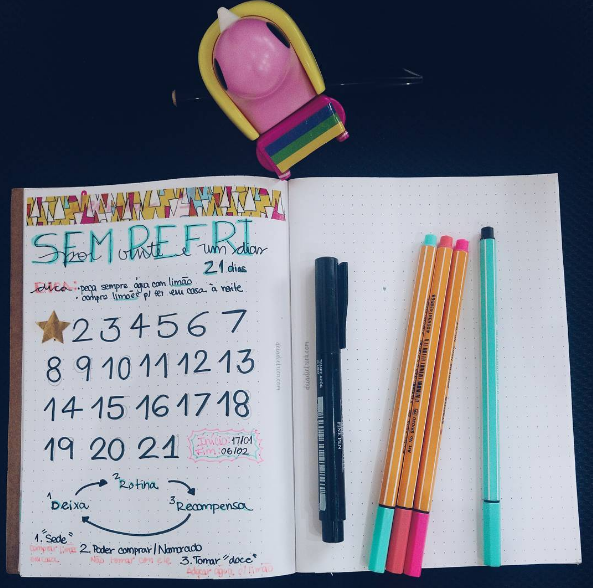 SEM REFRI
por vinte e um dias
21 dias
DICA: • peça sempre água com limão
• compre limões p/ ter em casa à noite
2 3 4 5 6 7
8 9 10 11 12 13
14 15 16 17 18
19 20 21
Início: 17/01
Fim: 06/02
¹Deixa
²Rotina
³Recompensa
1. "Sede"
2. Poder comprar/Namorado
3. Tomar "doce"